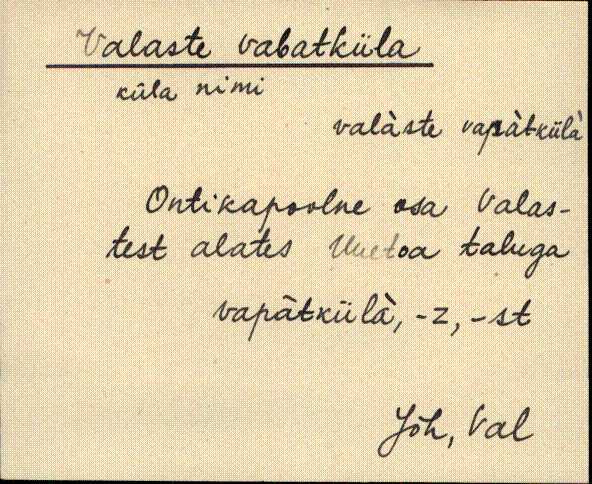 Valaste vabatküla
küla nimi
valàste vapàtkülà
Ontikapoolne osa Valas-
test alates Uuetoa taluga
vapàtkülà, -z, -st
Jõh, Val